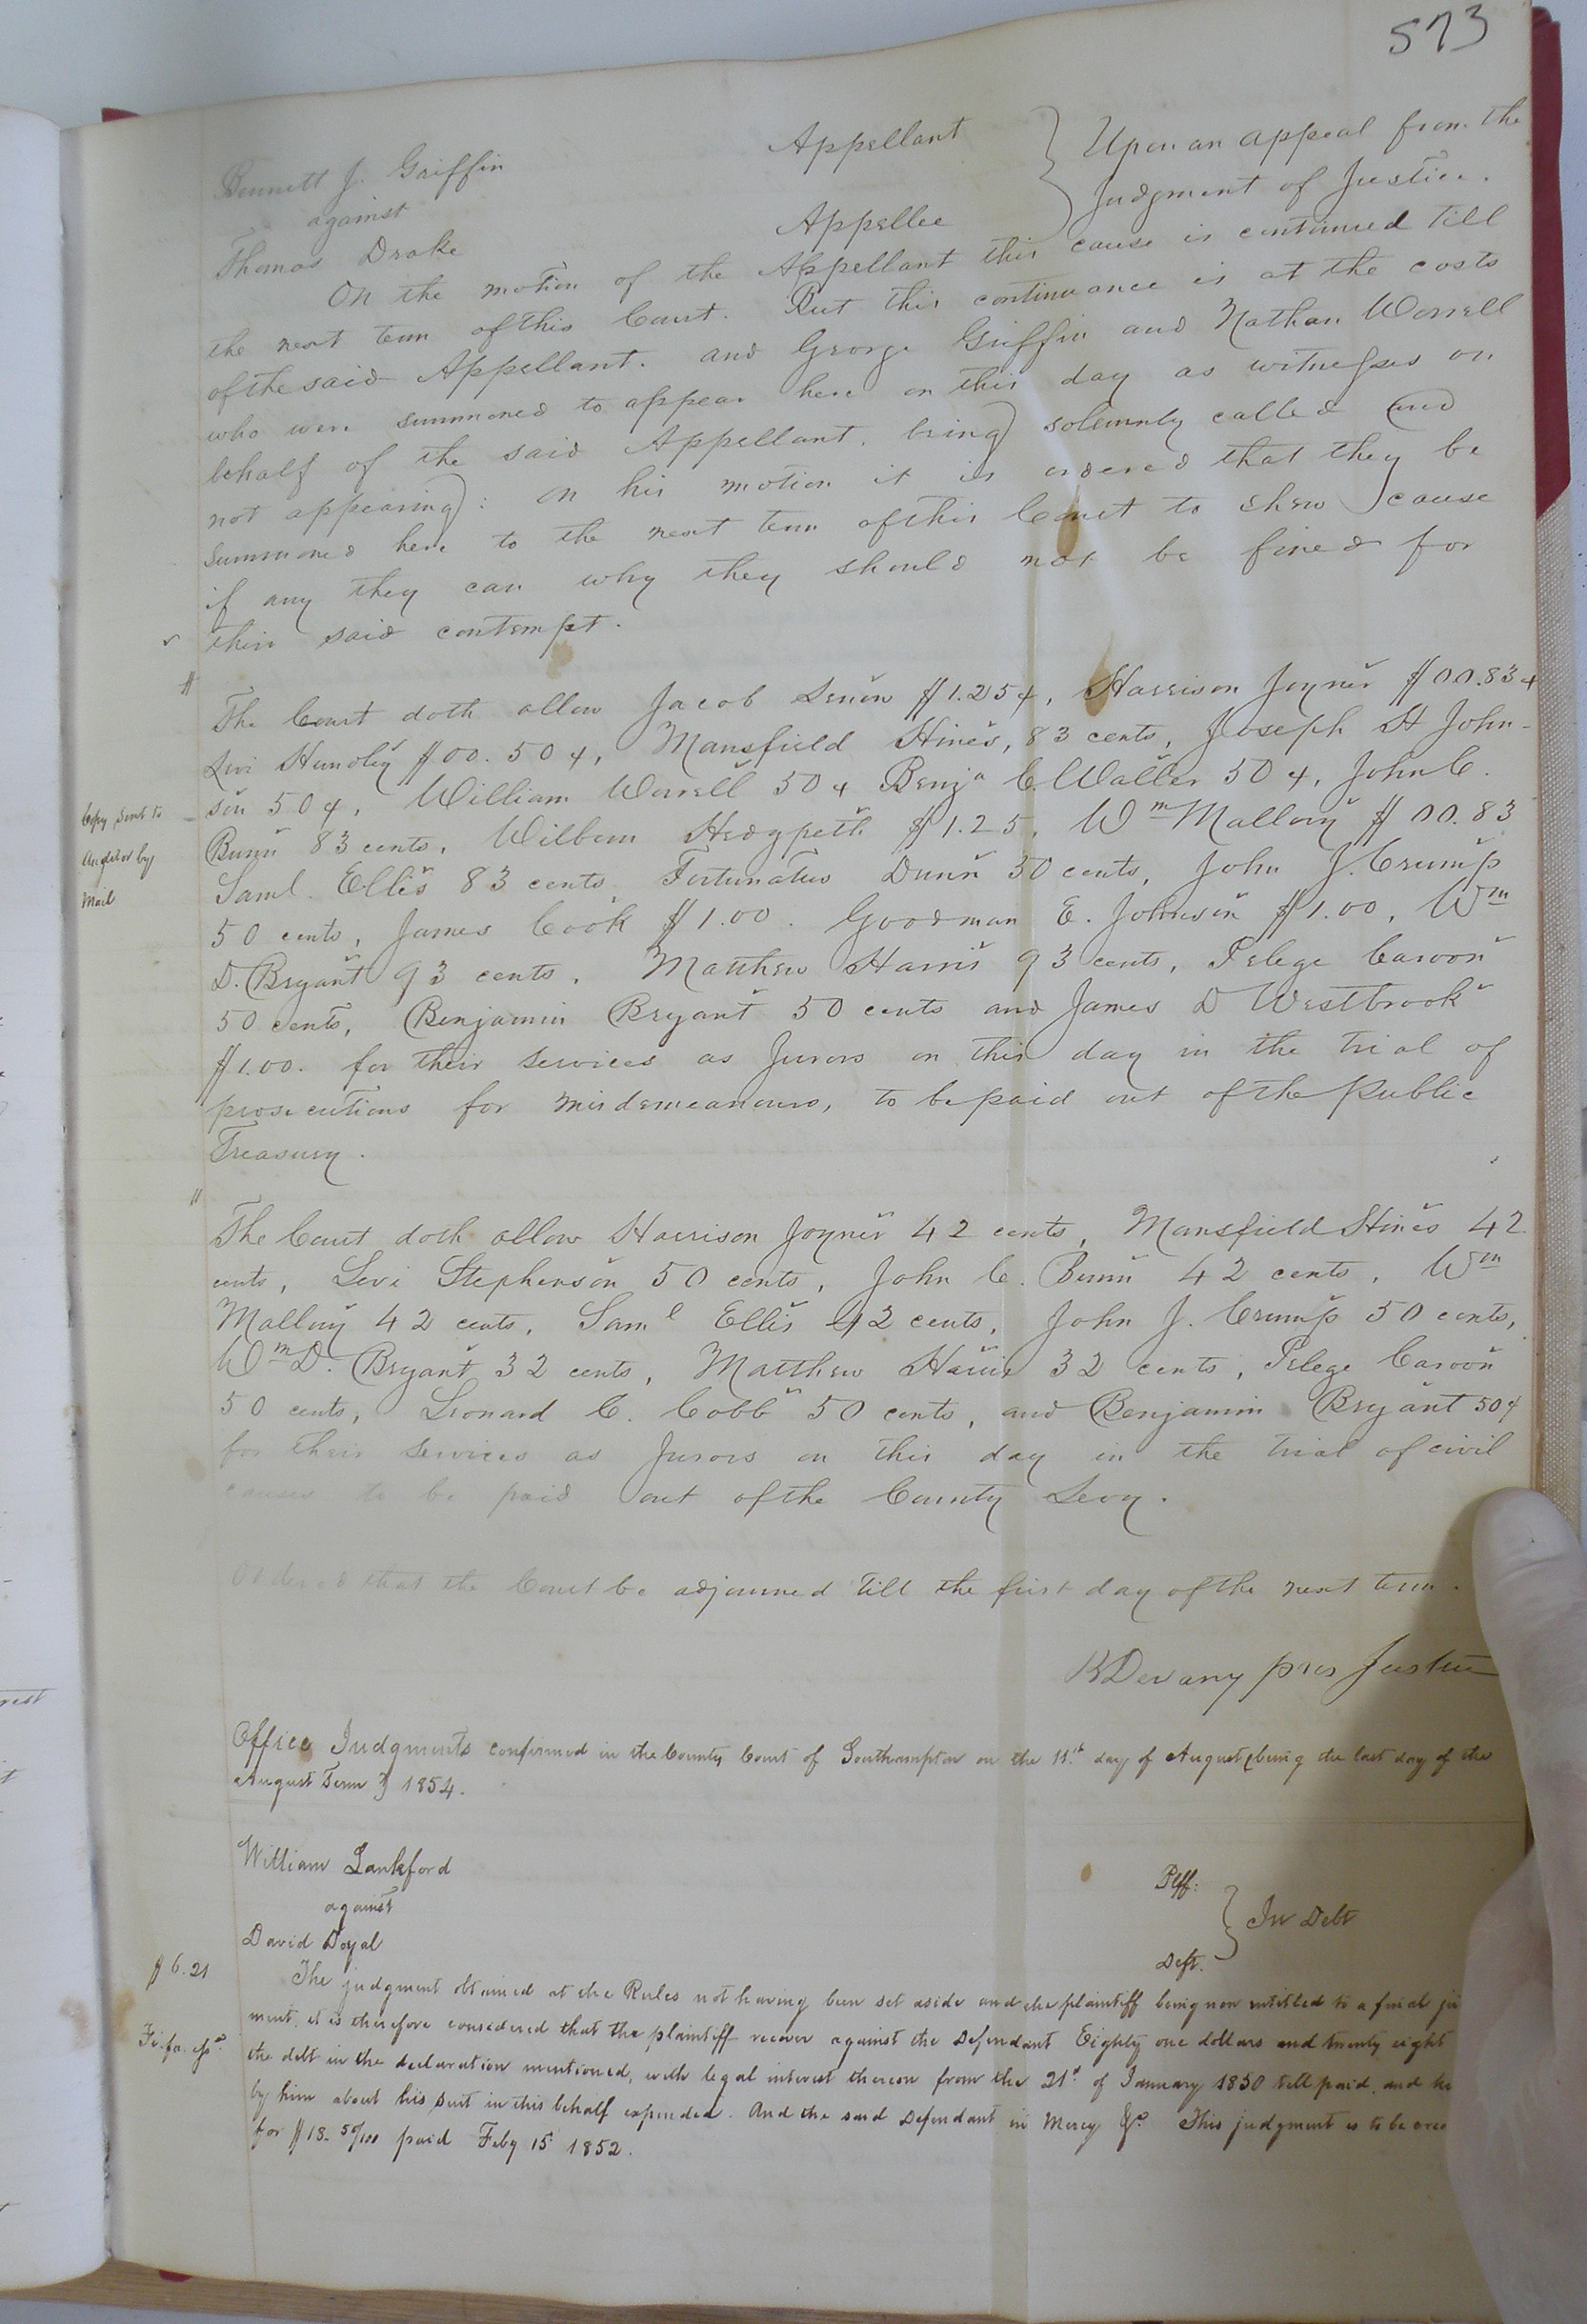 573
Bennett J. Griffin Appellant } Upon an appeal from the
against Judgment of Justice.
Thomas Drake Appellee
On the motion of the Appellant this cause is continued till
the next term of this Court. But this continuance is at the costs
of the said Appellant. and George Griffin and Nathan Worrell
who were summoned to appear here on this day as witnesses on
behalf of the said Appellant, being solemnly called and
not appearing: on his motion it is ordered that they be
summoned here to the next term of this Court to shew cause
if any they can why they should not be fined for
their said contempt.
The Court doth allow Jacob $1.25¢, Harrison Joyner $00.83¢
Levi Hundley $00.50¢, Mansfield Hines, 83 cents, Joseph H John-
son 50¢, William Worrell 50¢ Benja C Waller 50¢, John C.
Bunn 83 cents, Wilburn Hedgpeth $1.25, Wm Mallory $00.83
Saml. Ellis 83 cents Fortunatus Dunn 50 cents, John J. Crump
50 cents, James Cook $1.00. Goodman E. Johnson $1.00, Wm
D. Bryant 93 cents, Matthew Harris 93 cents, Pelege Caroon
50 cents, Benjamin Bryant 50 cents and James D Westbrook
$1.00. for their services as Jurors on this day in the trial of
prosecutions for misdemeanours, to be paid out of the Public
Treasury.
Copy sent to
Auditor by
Mail
The Court doth allow Harrison Joyner 42 cents, Mansfield Hines 42
cents, Levi Stephenson 50 cents, John C. Bunn 42 cents, Wm
Mallory 42 cents, Saml Ellis 42 cents, John J. Crump 50 cents,
Wm D. Bryant 32 cents, Matthew Harris 32 cents, Pelege Caroon
50 cents, Leonard C. Cobb 50 cents, and Benjamin Bryant 50¢
for their services as Jurors on this day in the trial of civil
causes to be paid out of the County Levy.
Ordered that the Court be adjourned till the first day of the next term.
Devany pres Justice
Office Judgments confirmed in the County Court of Southampton on the 11th day of August (being the last day of the
August Term) 1854.
William Lankford Plff:
against } In Debt
David Doyal Deft.
$6.21
The judgment obtained at the Rules not having been set aside and the plaintiff being now entitled to a final ju
ment, it is therefore considered that the plaintiff recover against the Defendant Eighty one dollars and twenty eight
Fi. fa.
the debt in the declaration mentioned, with legal interest thereon from the 21st of January 1850 till paid, and
by him about his suit in this behalf expended. And the said Defendant in Mercy &c. This judgment is to be cred
for $18.50/100 paid Feby 15 1852.